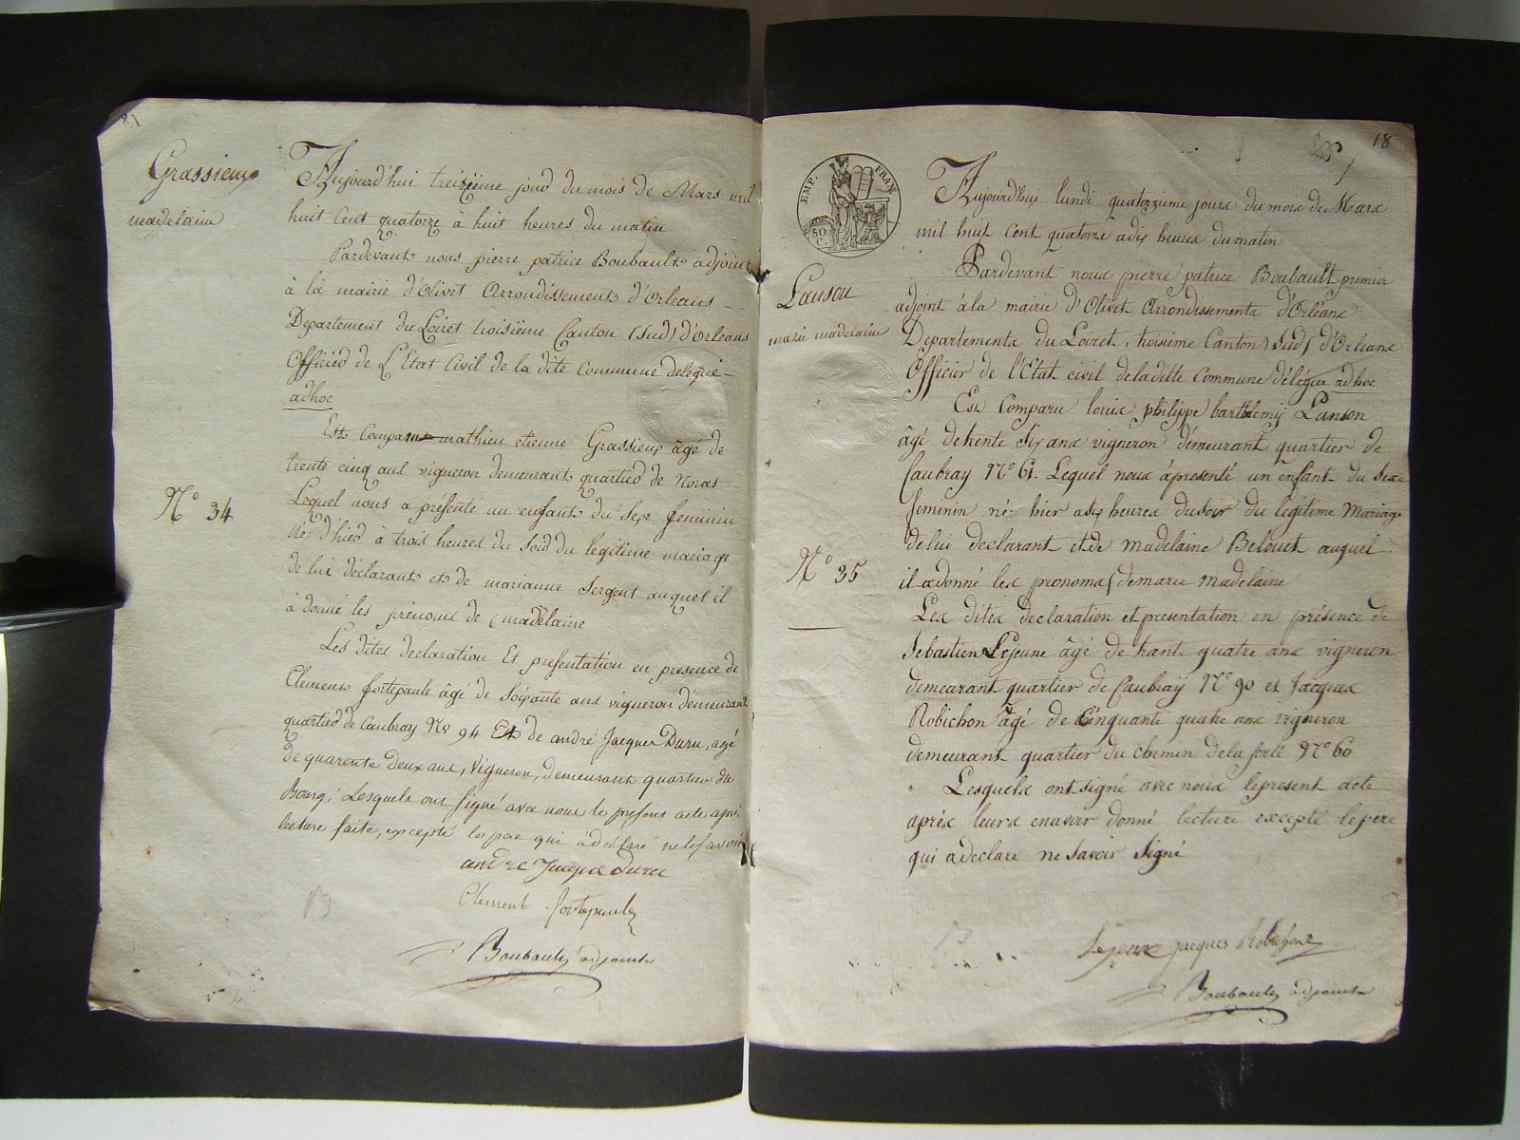 Grassieux
madelaine
N° 34
Aujourd'hui treizième jour du mois de Mars mil
huit Cent quatorze à huit heures du matin
Pardevant nous pierre patrice Boubault adjoint
à la mairie d'Olivet Arrondissement d'Orleans
Departement du Loiret troisième Canton (Sud) d'Orleans
Officier de L'Etat Civil de la dite Commune delegué
adhoc
Est Comparu mathieu etienne Grassieux âgé de
trente cinq ans vigneron demeurant quartier de
Lequel nous a présenté un enfant du Sexe feminin
né d'hier à trois heures du Soir du legitime mariage
de lui déclarant et de marianne Sergent auquel il
à donné les prénoms de madelaine
Les dites déclaration Et presentation en presence de
Clement fortepaule âgé de Soixante ans vigneron demeurant
quartier de Caubray No 94 Et de andré Jacques Duru, agé
de quarente deux ans, Vigneron, demeurant quartier du
Bourg, Lesquels ont Signé avec nous le present acte après
lecture faite, excepté le pere qui a déclaré ne le savoir
andre Jacque Duru
Clement fortepaule
Boubault adjoint
EMP. FRAN
50
C.
18
Lanson
marie madelaine
N° 35
Aujourd'hui lundi quatorzieme jours du mois de Mars
mil huit Cent quatorze a dix heures du matin
Pardevant nous pierre patrice Boubault premier
adjoint à la mairie d'Olivet Arrondissements d'Orleans
Departements du Loiret, troisieme Canton (Sud) d'Orleans
Officier de l'Etat civil deladitte Commune délégué adhoc
Est Comparu louis philippe barthlemij Lanson
âgé de trente Six ans vigneron demeurant quartier de
Caubray N° 61. Lequel nous à presenté un enfant du Sexe
feminin né hier a dix heures du soir du legitime Mariage
de lui declarant et de Madelaine Belouet auquel
il a donné les pronoms de marie Madelaine
Les dites declaration et presentation en présence de
Sebastien Lejeune âgé de trante quatre ans vigneron
demeurant quartier de Caubray N° 90 et Jacques
Robichon âgé de Cinquante quatre ans vigneron
demeurant quartier du chemin dela forte N° 60
Lesquels ont signé avec nous lepresent acte
après leurs enavoir donné lecture excepté lepere
qui a declaré ne Savoir Signé
Lejeune Jacques Robichon
Boubault adjoint